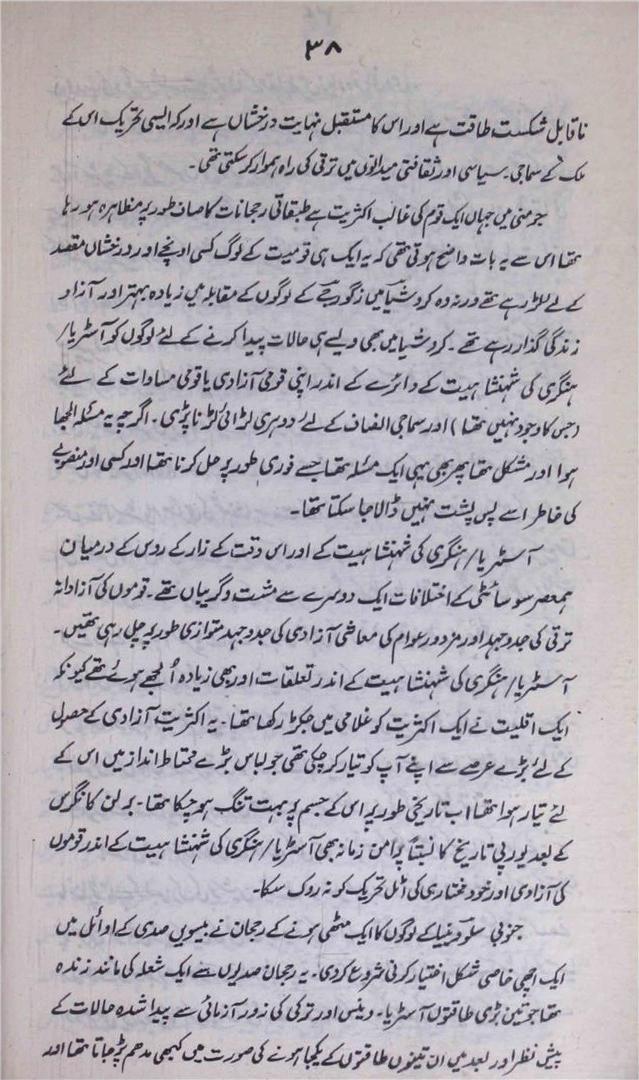 ۳۸
ناقابل شکست طاقت ہے اور اس کا مستقبل نہایت درخشاں ہے اور کہ ایسی تحریک اس کے
ملک کے سماجی۔ سیاسی اور ثقافتی میدانوں میں ترقی کی راہ ہموار کر سکتی تھی۔
جرمنی میں جہاں ایک قوم کی غالب اکثریت ہے طبقاتی رجحانات کا صاف طور پر مظاہرہ ہو رہا
تھا اس سے یہ بات واضح ہوتی تھی کہ یہ ایک ہی قومیت کے لوگ کسی اونچے اور درخشاں مقصد
کے لئے لڑ رہے تھے ورنہ وہ کروشیا میں زگورجے کے لوگوں کے مقابلہ میں زیادہ بہتر اور آزاد
زندگی گذار رہے تھے۔ کروشیا میں بھی ویسے ہی حالات پیدا کرنے کے لئے لوگوں کو آسٹریا/
ہنگری کی شہنشاہیت کے دائرے کے اندر اپنی قومی آزادی یا قومی مساوات کے لئے
(جس کا وجود نہیں تھا) اور سماجی انصاف کے لئے دوہری لڑائی لڑنا پڑی۔ اگرچہ یہ مسئلہ الجھا
ہوا اور مشکل تھا پھر بھی یہی ایک مسئلہ تھا جسے فوری طور پر حل کرنا تھا اور کسی اور منصوبے
کی خاطر اسے پس پشت نہیں ڈالا جا سکتا تھا۔
آسٹریا/ ہنگری کی شہنشاہیت کے اور اس وقت کے زار کے روس کے درمیان
ہمعصر سوسائٹی کے اختلافات ایک دوسرے سے مشت و گریباں تھے۔ قوموں کی آزادانہ
ترقی کی جدوجہد اور مزدور عوام کی معاشی آزادی کی جدوجہد متوازی طور پر چل رہی تھیں۔
آسٹریا/ ہنگری کی شہنشاہیت کے اندر تعلقات اور بھی زیادہ اُلجھے ہوئے تھے کیونکہ
ایک اقلیت نے ایک اکثریت کو غلامی میں جکڑ رکھا تھا۔ یہ اکثریت آزادی کے حصول
کے لئے بڑے عرصے سے اپنے آپ کو تیار کر چکی تھی جو لباس بڑے محتاط انداز میں اس کے
لئے تیار ہوا تھا اب تاریخی طور پر اس کے جسم پر بہت تنگ ہو چکا تھا۔ برلن کانگریس
کے بعد یورپی تاریخ کا نسبتاً پُر امن زمانہ بھی آسٹریا/ ہنگری کی شہنشاہیت کے اندر قوموں
کی آزادی اور خود مختاری کی اٹل تحریک کو نہ روک سکا۔
جنوبی سلووینیا کے لوگوں کا ایک مٹھی ہونے کے رجحان نے بیسویں صدی کے اوائل میں
ایک اچھی خاصی شکل اختیار کرنی شروع کر دی۔ یہ رجحان صدیوں سے ایک شعلہ کی مانند زندہ
تھا جو تین بڑی طاقتوں آسٹریا۔ وینس اور ترکی کی زور آزمائی سے پیدا شدہ حالات کے
پیش نظر اور بعد میں ان تینوں طاقتوں کے یکجا ہونے کی صورت میں کبھی مدھم پڑ جاتا تھا اور